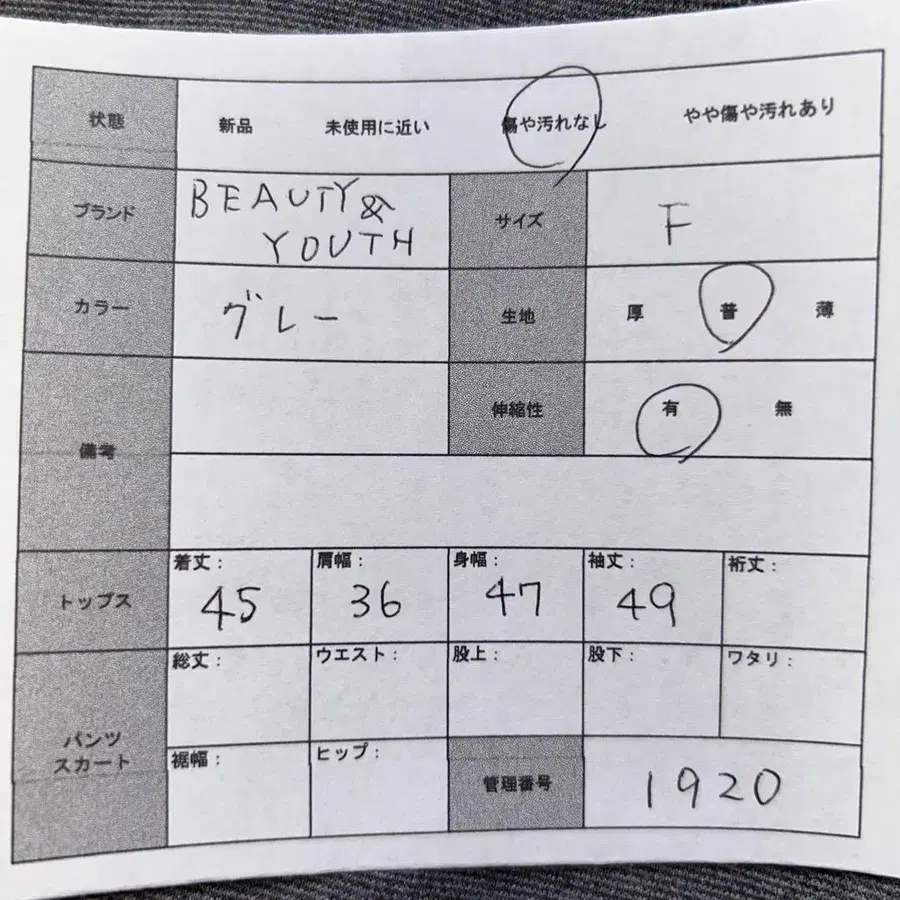 状態 新品 未使用に近い 傷や汚れなし やや傷や汚れあり
ブランド BEAUTY&
YOUTH
サイズ F
カラー グレー 生地 厚 普 薄
備考 伸縮性 有 無
トップス 着丈: 肩幅: 身幅: 袖丈: 裄丈:
45 36 47 49
パンツ
スカート
総丈: ウエスト: 股上: 股下: ワタリ:
裾幅: ヒップ: 管理番号 1920